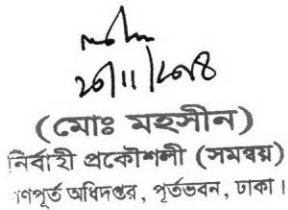 ২৫/১১/২০১৪
(মোঃ মহসীন)
নির্বাহী প্রকৌশলী (সমন্বয়)
গণপূর্ত অধিদপ্তর, পূর্তভবন, ঢাকা।